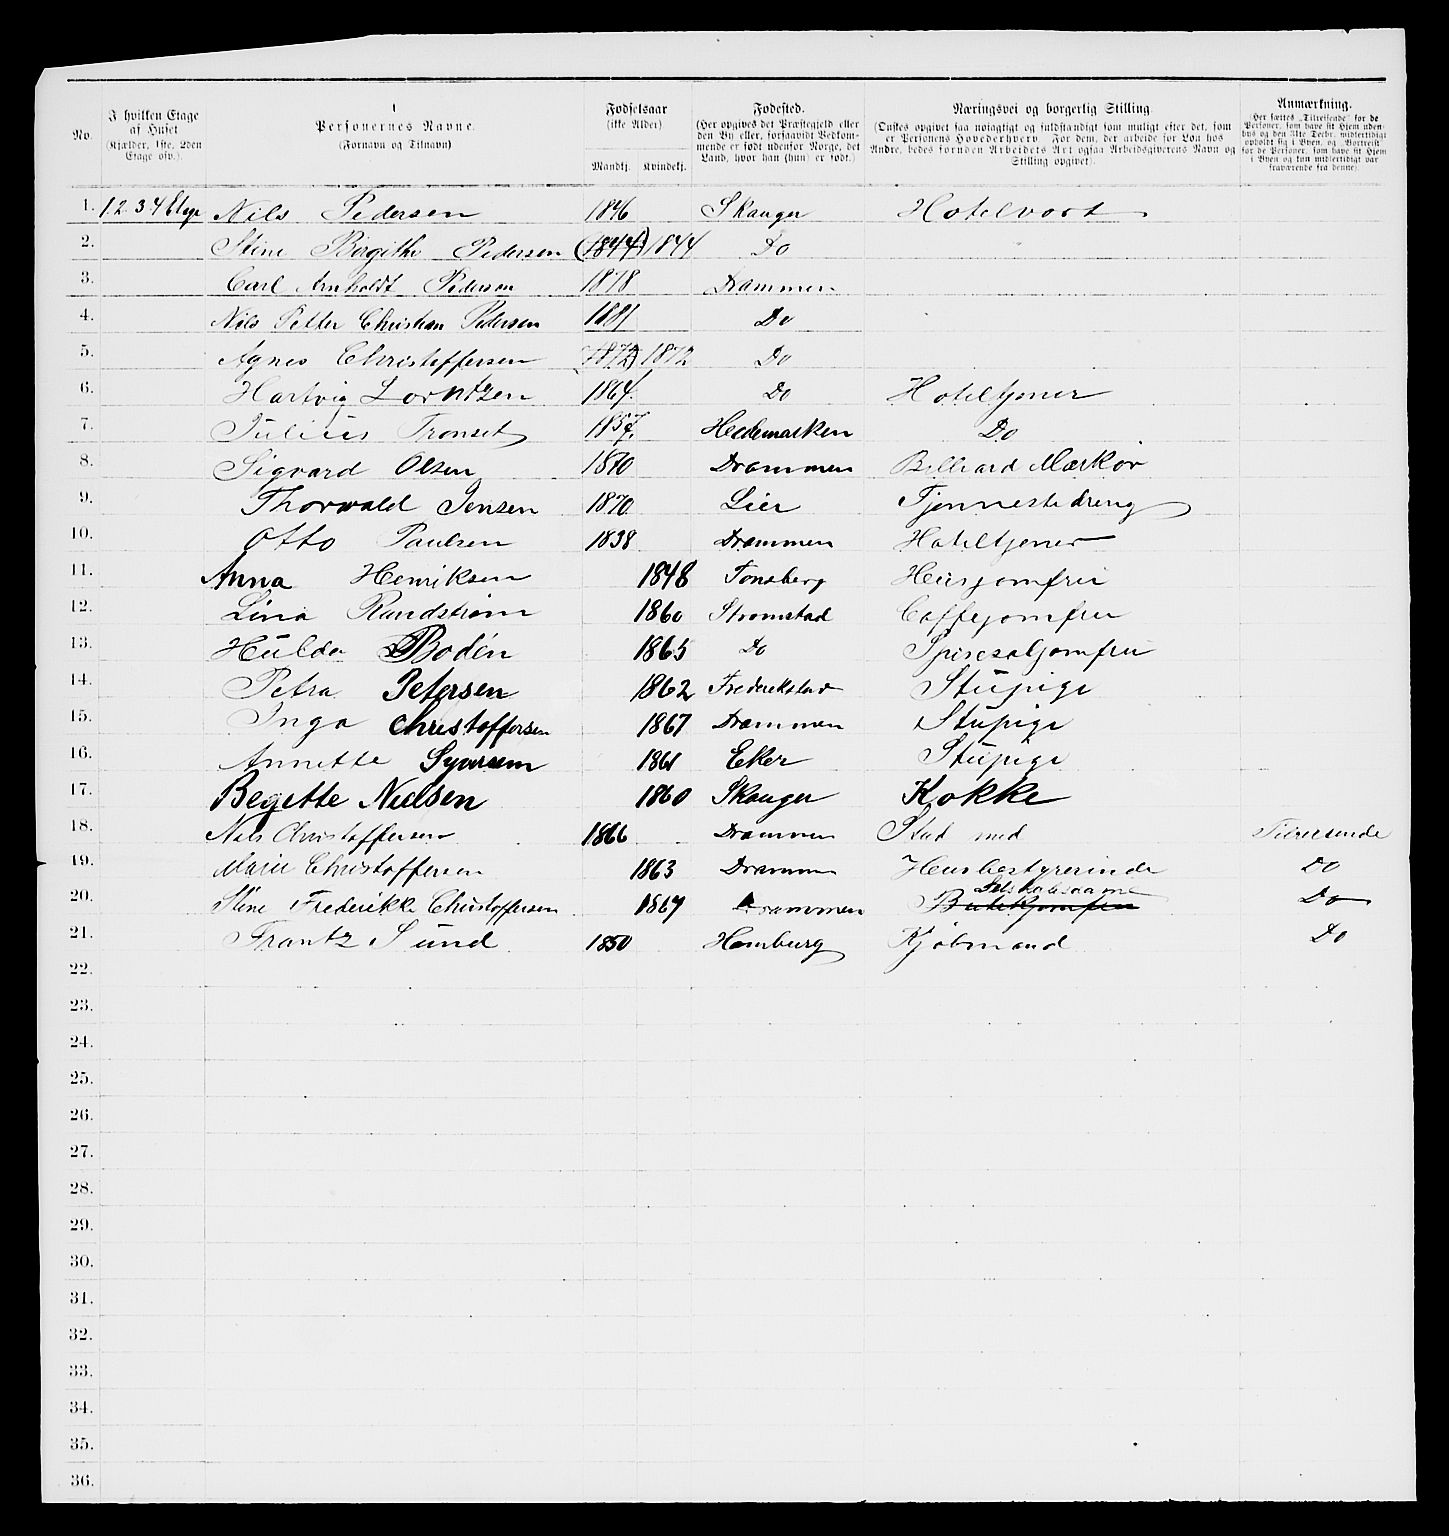 No.
I hvilken Etage af Huset (Kjælder, 1ste, 2den Etage osv.).
Personernes Navne. (Fornavn og Tilnavn)
Fødselsaar (ikke Alder)
Mandkj. Kvindekj.
Fødested. (Her opgives det Præstegjeld eller den By eller, forsaavidt Vedkommende er født udenfor Norge, det Land, hvor han (hun) er født.)
Næringsvei og borgerlig Stilling. (Ønskes opgivet saa nøiagtigt og fuldstændigt som muligt efter det, som er Personens Hovederhverv. For dem, der arbeide for Løn hos Andre, bedes foruden Arbeidets Art ogsaa Arbeidsgiverens Navn og Stilling opgivet).
Anmærkning. (Her sættes „Tilreisende“ for de Personer, som have sit Hjem udenbys og den 31te Decbr. midlertidigt opholdt sig i Byen, og „Bortreist“ for de Personer, som have sit Hjem i Byen og kun midlertidigt var fraværende fra denne).
1. 1 2 3 4 Etage Nils Pedersen 1846 Skauger Hotelvært
2. Stine Birgithe Pedersen (1844) 1844 Do
3. Carl Arnholdt Pedersen 1878 Drammen
4. Nils Petter Christian Pedersen 1881 Do
5. Agnes Christoffersen (1872) 1872 Do
6. Hartvig Lorntzen 1864. Do Hoteltjener
7. Julius Tronset 1857. Hedemarken Do
8. Sigvard Olsen 1870 Drammen Billiard Markør
9. Thorvald Jensen 1870. Lier Tjenneste dreng
10. Otto Paulsen 1838 Drammen Hoteltjener
11. Anna Henriksen 1848 Tonsberg Husjomfru
12. Lina Rundstrøm 1860 Strømstad Caffejomfru
13. Hulda Bodén 1865 Do Spisesaljomfru
14. Petra Petersen 1862 Frederikstad Stupige
15. Inga Christoffersen 1867 Drammen Stupige
16. Annette 1861 Eker Stupige
17. Begette Nielsen 1860 Skauger Kokke
18. Nils Christoffersen 1866 Drammen Stud med Tilreisende
19. Marie Christoffersen 1863 Drammen Husbestyrerinde Do
20. Stine Frederikke Christoffersen 1867 Drammen Do
21. Frantz Sund 1850 Hamburg Kjøbmand Do
22.
23.
24.
25.
26.
27.
28.
29.
30.
31.
32.
33.
34.
35.
36.